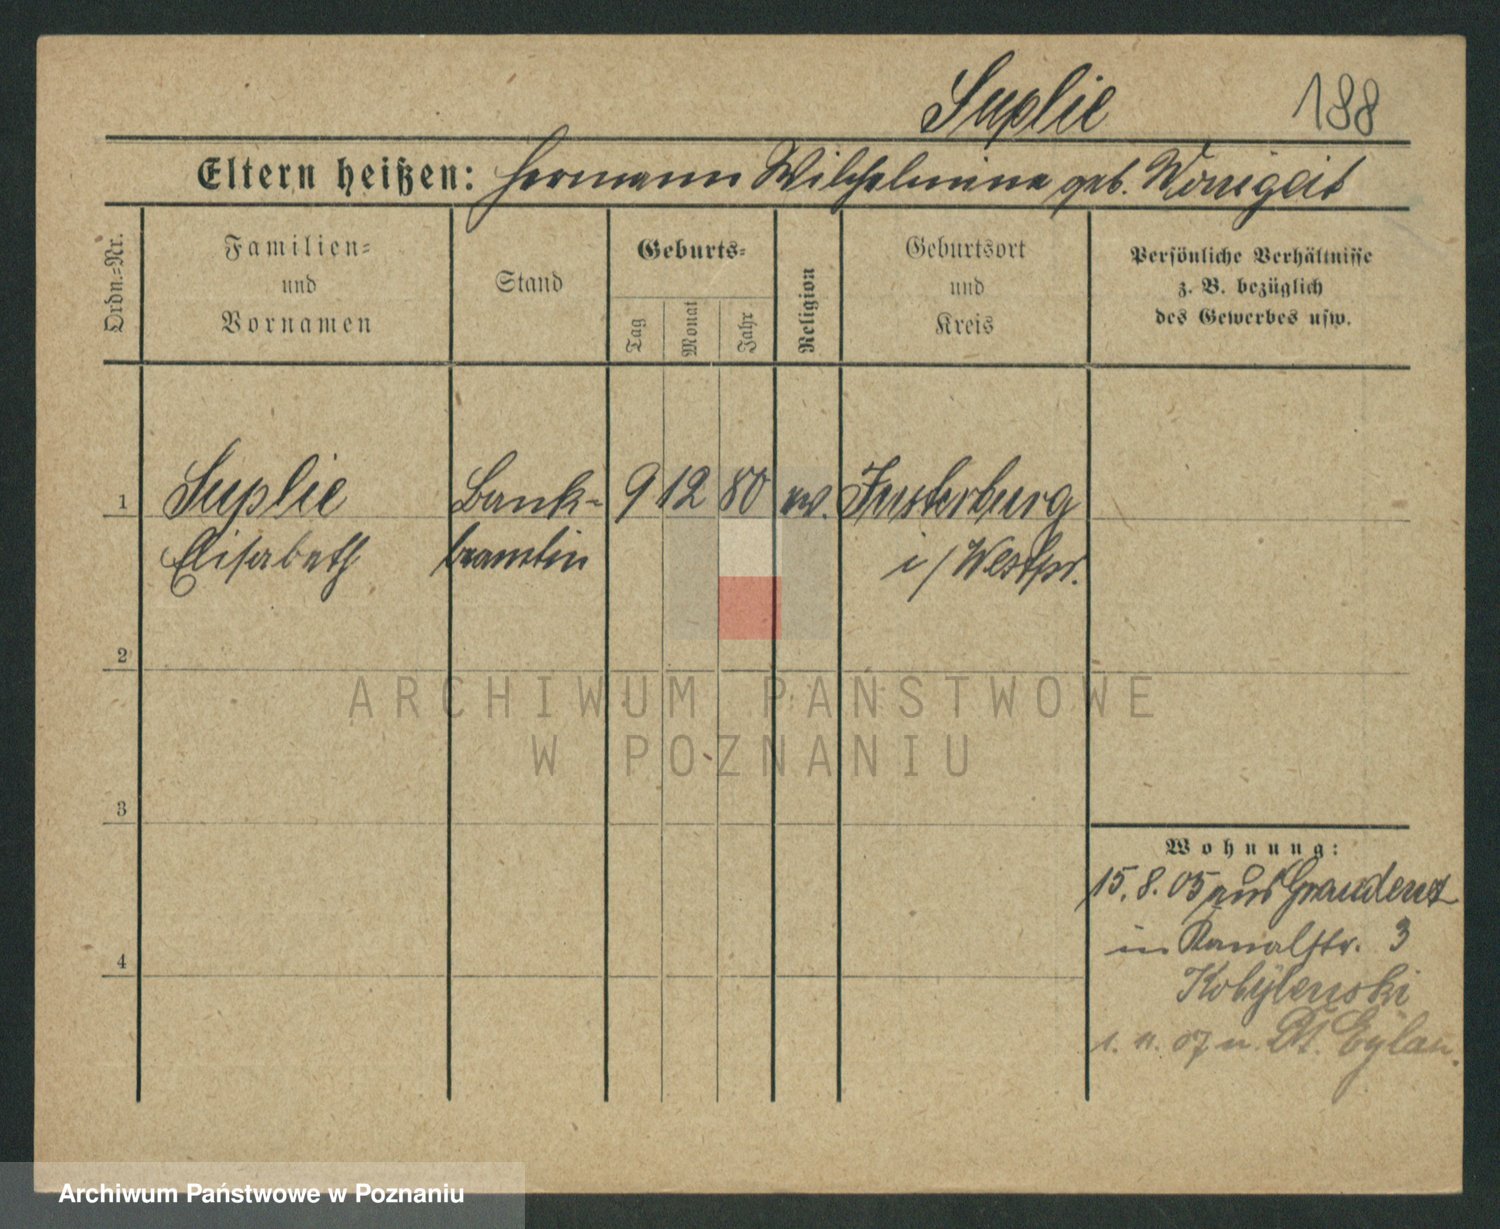 Suplie 188
Eltern heißen: Hermann Wilhelmine geb.
Ordn.-Nr.
Familien- und Vornamen
Stand
Geburts-
Tag Monat Jahr
Religion
Geburtsort und Kreis
Persönliche Verhältnisse
z. B. bezüglich
des Gewerbes usw.
1 Suplie Bank- 9 12 80 ev. Insterburg
Elisabeth beamtin i/Westpr.
2
ARCHIWUM PAŃSTWOWE
W POZNANIU
3
Wohnung:
15.8.05 aus Graudenz
in Kanalstr. 3
4
Kobylenski
07 n. Dt. Eylau.
Archiwum Państwowe w Poznaniu